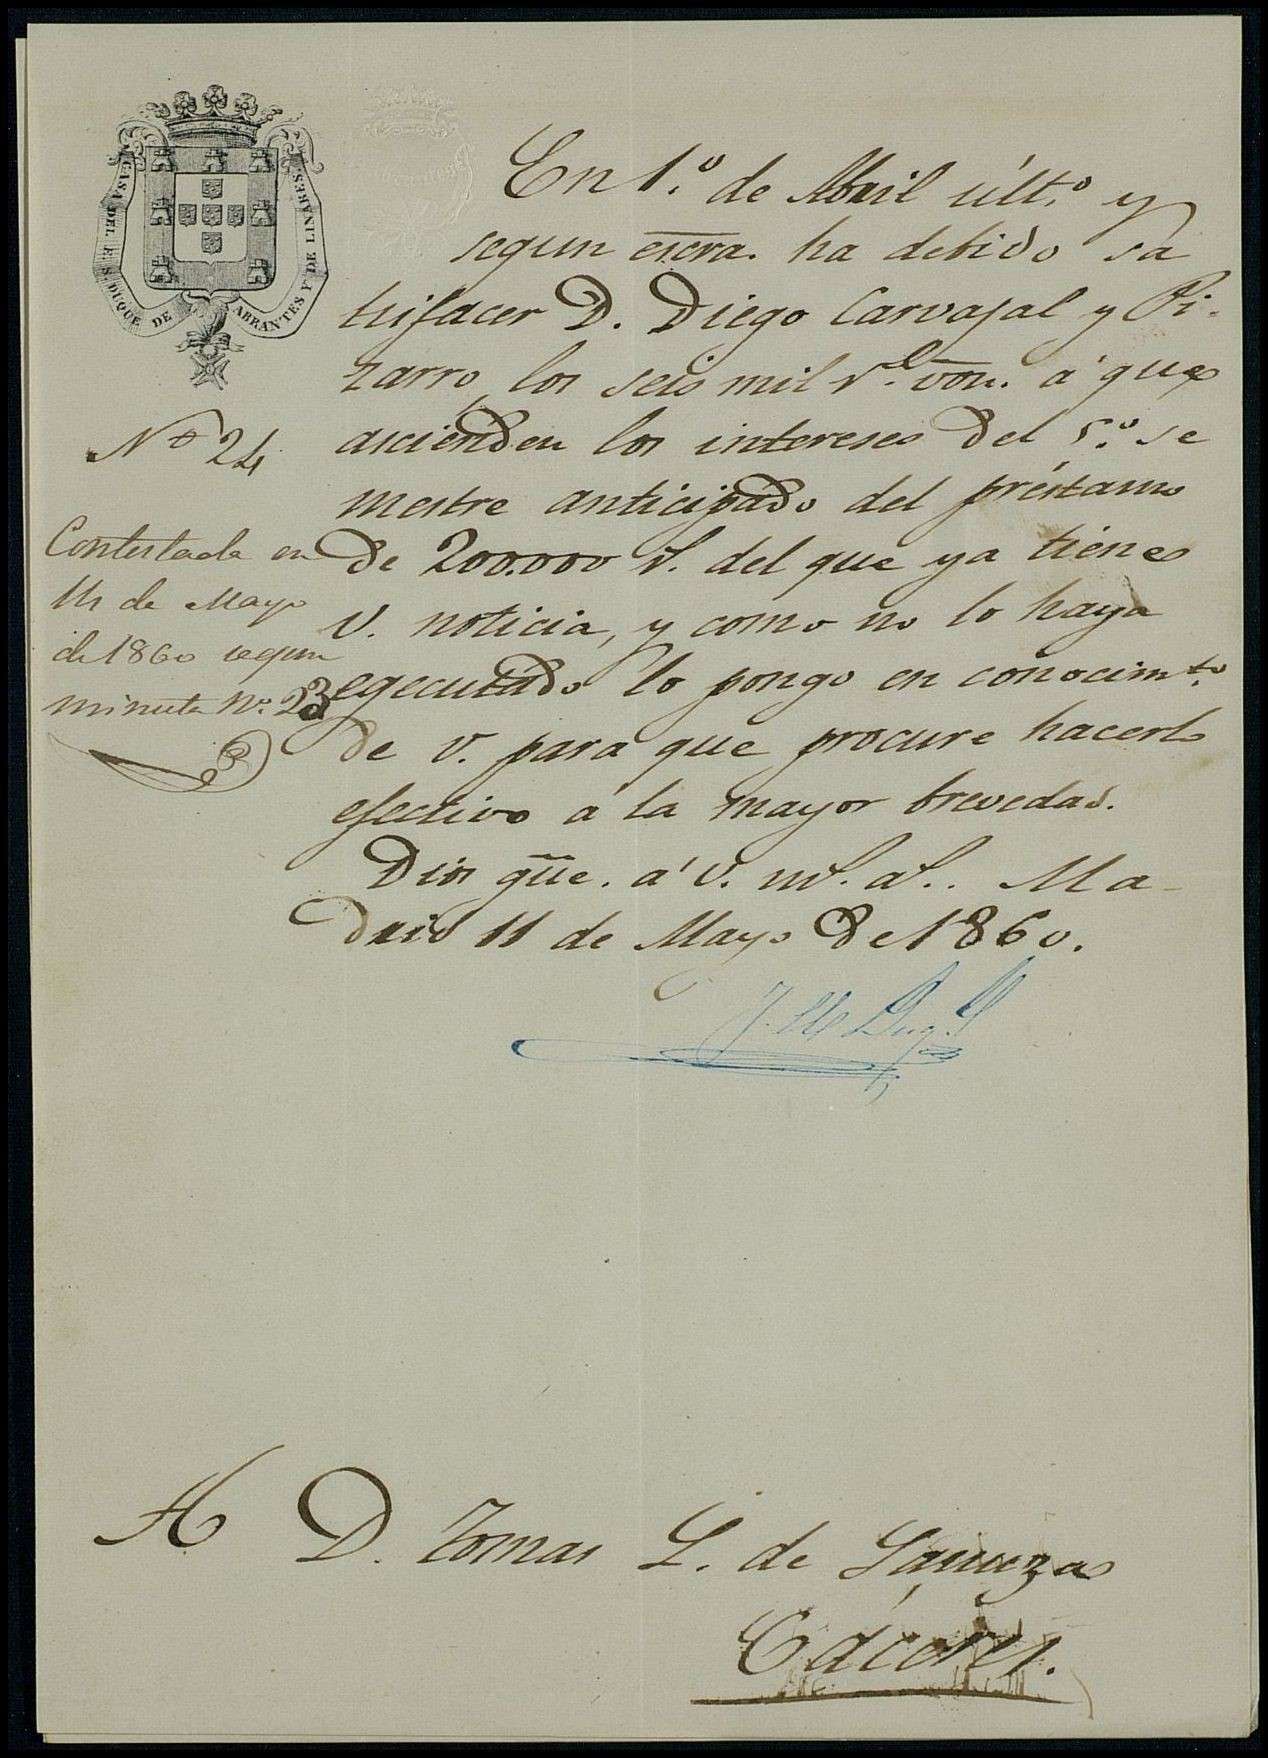 CASA DEL E. S. DUQUE DE ABRANTES Y DE LINARES
En 1.º de Abril últ.º y
segun escra. ha debido sa
tisfacer D. Diego Carvajal y Pi-
zarro, los seis mil r.s von. á que
ascienden los intereses del 5.º se
mestre anticipado del préstamo
de 200.000 r.s del que ya tiene
V. noticia, y como no lo haya
egecutado lo pongo en conocim.to
de V. para que procure hacerlo
efectivo á la mayor brevedad.
Dios gue. á V. m.s a.s. Ma-
drid 11 de Mayo de 1860.
Nº 24
Contestada en
14 de Mayo
de 1860 segun
minuta Nº. 23
A D. Tomas L. de
Cáceres.